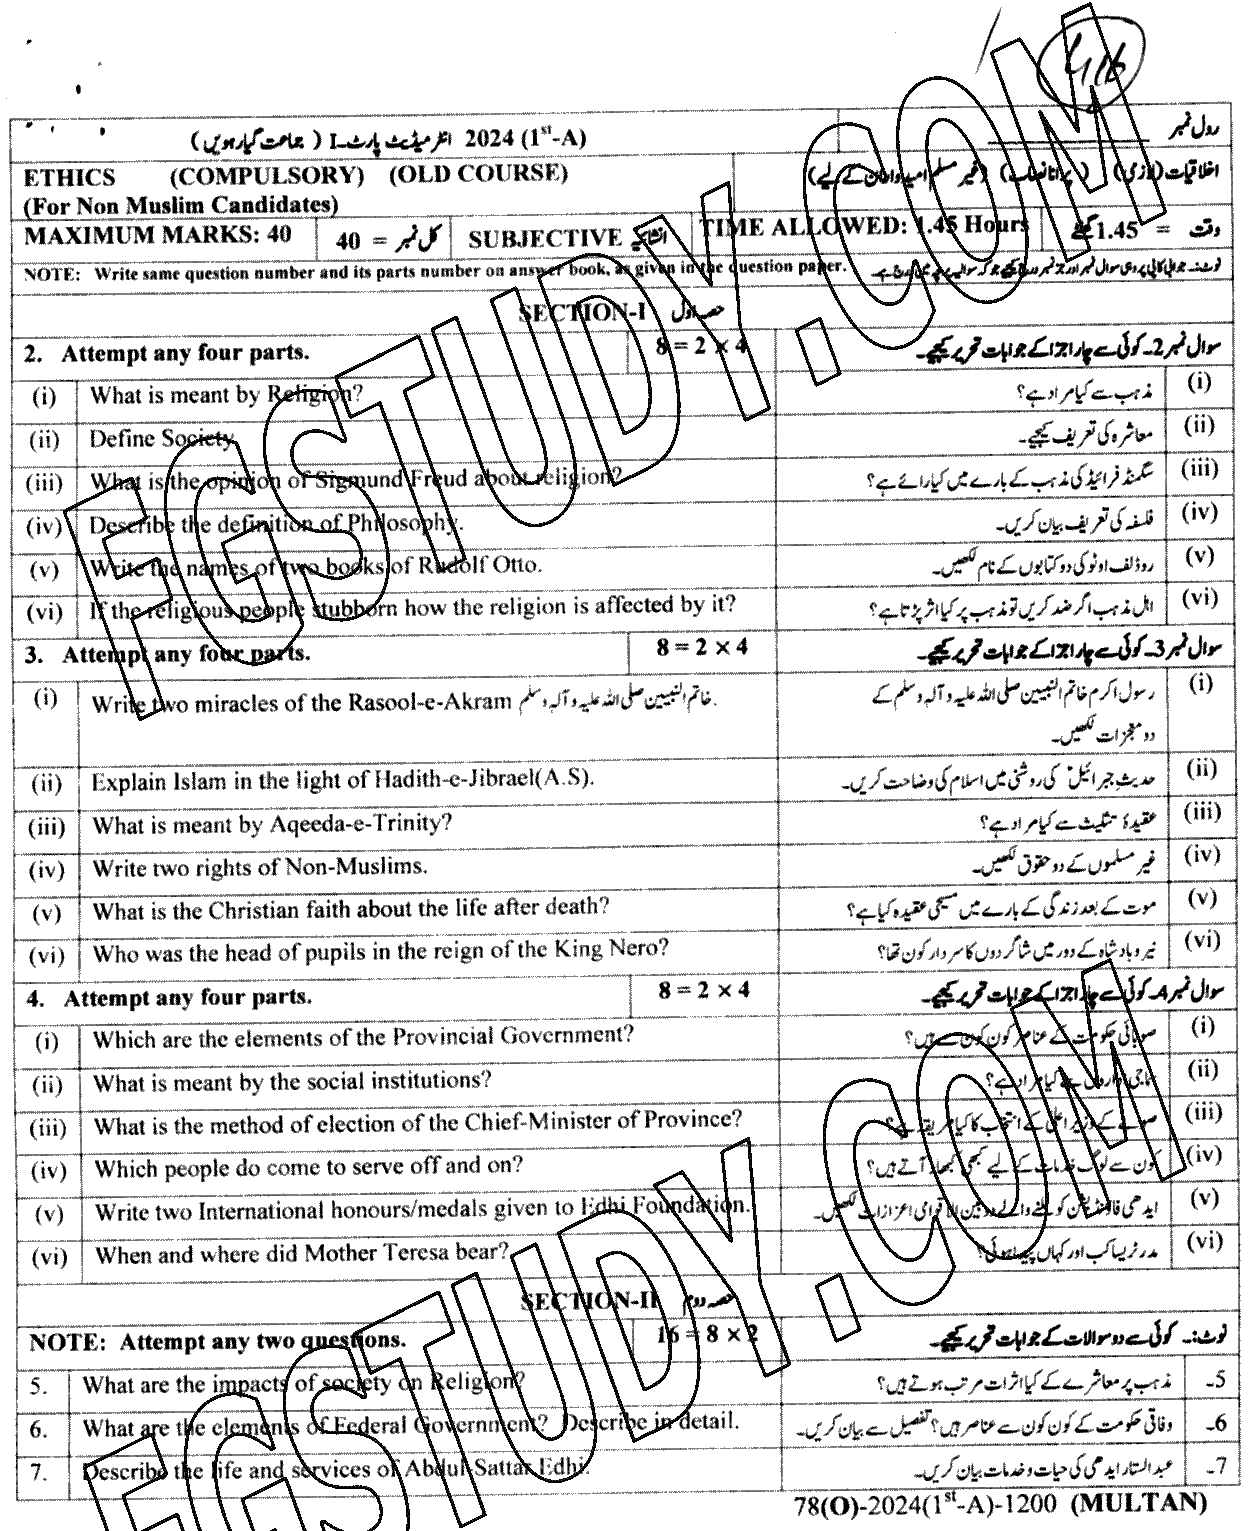 416
انٹرمیڈیٹ پارٹ-I ( جماعت گیارہویں ) 2024 (1st-A)
رول نمبر
ETHICS (COMPULSORY) (OLD COURSE)
(For Non Muslim Candidates)
اخلاقیات (لازمی) ( پرانا نصاب) (غیر مسلم امیدواران کے لیے)
MAXIMUM MARKS: 40 کل نمبر = 40 SUBJECTIVE انشائیہ TIME ALLOWED: 1.45 Hours وقت = 1.45 گھنٹے
NOTE: Write same question number and its parts number on answer book, as given in the question paper. نوٹ:۔ جوابی کاپی پر وہی سوال نمبر اور جز نمبر درج کیجیے جو کہ سوالیہ پرچے میں درج ہے۔
SECTION-I حصہ اول
2. Attempt any four parts. 8 = 2 × 4 سوال نمبر 2۔ کوئی سے چار اجزا کے جوابات تحریر کیجیے۔
(i) What is meant by Religion? مذہب سے کیا مراد ہے؟ (i)
(ii) Define Society. معاشرہ کی تعریف کیجیے۔ (ii)
(iii) What is the opinion of Sigmund Freud about religion? سگمنڈ فرائیڈ کی مذہب کے بارے میں کیا رائے ہے؟ (iii)
(iv) Describe the definition of Philosophy. فلسفہ کی تعریف بیان کریں۔ (iv)
(v) Write the names of two books of Rudolf Otto. روڈلف اوٹو کی دو کتابوں کے نام لکھیں۔ (v)
(vi) If the religious people stubborn how the religion is affected by it? اہل مذہب اگر ضد کریں تو مذہب پر کیا اثر پڑتا ہے؟ (vi)
3. Attempt any four parts. 8 = 2 × 4 سوال نمبر 3۔ کوئی سے چار اجزا کے جوابات تحریر کیجیے۔
(i) Write two miracles of the Rasool-e-Akram خاتم النبیین صلی اللہ علیہ و آلہ وسلم. رسول اکرم خاتم النبیین صلی اللہ علیہ و آلہ وسلم کے (i)
دو معجزات لکھیں۔
(ii) Explain Islam in the light of Hadith-e-Jibrael(A.S). حدیث جبرائیلؑ کی روشنی میں اسلام کی وضاحت کریں۔ (ii)
(iii) What is meant by Aqeeda-e-Trinity? عقیدۂ تثلیث سے کیا مراد ہے؟ (iii)
(iv) Write two rights of Non-Muslims. غیر مسلموں کے دو حقوق لکھیں۔ (iv)
(v) What is the Christian faith about the life after death? موت کے بعد زندگی کے بارے میں مسیحی عقیدہ کیا ہے؟ (v)
(vi) Who was the head of pupils in the reign of the King Nero? نیرو بادشاہ کے دور میں شاگردوں کا سردار کون تھا؟ (vi)
4. Attempt any four parts. 8 = 2 × 4 سوال نمبر 4۔ کوئی سے چار اجزا کے جوابات تحریر کیجیے۔
(i) Which are the elements of the Provincial Government? صوبائی حکومت کے عناصر کون کون سے ہیں؟ (i)
(ii) What is meant by the social institutions? سماجی اداروں سے کیا مراد ہے؟ (ii)
(iii) What is the method of election of the Chief-Minister of Province? صوبے کے وزیر اعلیٰ کے انتخاب کا کیا طریقہ ہے؟ (iii)
(iv) Which people do come to serve off and on? کون سے لوگ خدمات کے لیے کبھی کبھار آتے ہیں؟ (iv)
(v) Write two International honours/medals given to Edhi Foundation. ایدھی فاؤنڈیشن کو ملنے والے دو بین الاقوامی اعزازات لکھیں۔ (v)
(vi) When and where did Mother Teresa bear? مدر ٹریسا کب اور کہاں پیدا ہوئی؟ (vi)
SECTION-II حصہ دوم
NOTE: Attempt any two questions. 16 = 8 × 2 نوٹ:۔ کوئی سے دو سوالات کے جوابات تحریر کیجیے۔
5. What are the impacts of society on Religion? مذہب پر معاشرے کے کیا اثرات مرتب ہوتے ہیں؟ 5۔
6. What are the elements of Federal Government? Describe in detail. وفاقی حکومت کے کون کون سے عناصر ہیں؟ تفصیل سے بیان کریں۔ 6۔
7. Describe the life and services of Abdul-Sattar Edhi. عبدالستار ایدھی کی حیات و خدمات بیان کریں۔ 7۔
78(O)-2024(1st-A)-1200 (MULTAN)
FGSTUDY.COM
FGSTUDY.COM